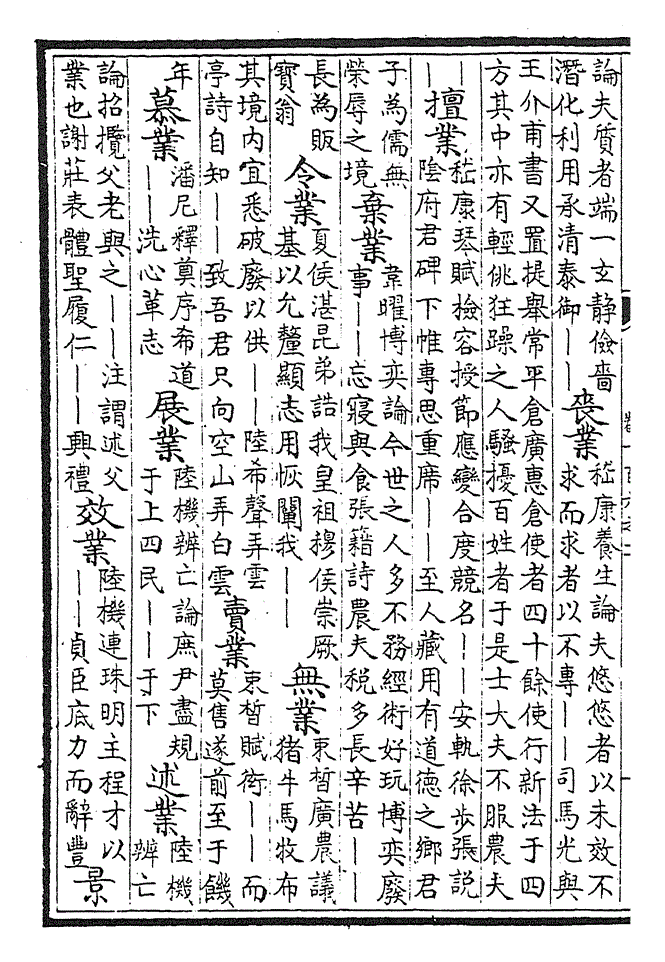 論夫質者端一玄静儉嗇
潛化利用承清泰御||
喪業
嵇康養生論夫悠悠者以未效不
求而求者以不專||司馬光與
王介甫書又置提舉常平倉廣惠倉使者四十餘使行新法于四
方其中亦有輕佻狂躁之人騷擾百姓者于是士大夫不服農夫
||
擅業
嵇康琴賦檢容授節應變合度競名||安軌徐步張説
陰府君碑下帷專思重席||至人藏用有道德之鄉君
子為儒無
榮辱之境
棄業
韋曜博奕論今世之人多不務經術好玩博奕廢
事||忘寢與食張籍詩農夫税多長辛苦||
長為販
寶翁
令業
夏侯湛昆弟誥我皇祖穆侯崇厥
基以允釐顯志用恢闡我||
無業
束皙廣農議
豬牛馬牧布
其境内宜悉破廢以供||陸希聲弄雲
亭詩自知||致吾君只向空山弄白雲
賣業
束皙賦衒||而
莫售遂前至于饑
年
慕業
潘尼釋奠序希道
||洗心革志
展業
陸機辨亡論庶尹盡規
于上四民||于下
述業
陸機
辨亡
論招攬父老與之||注謂述父
業也謝莊表體聖履仁||興禮
效業
陸機連珠明主程才以
||貞臣底力而辭豐
景